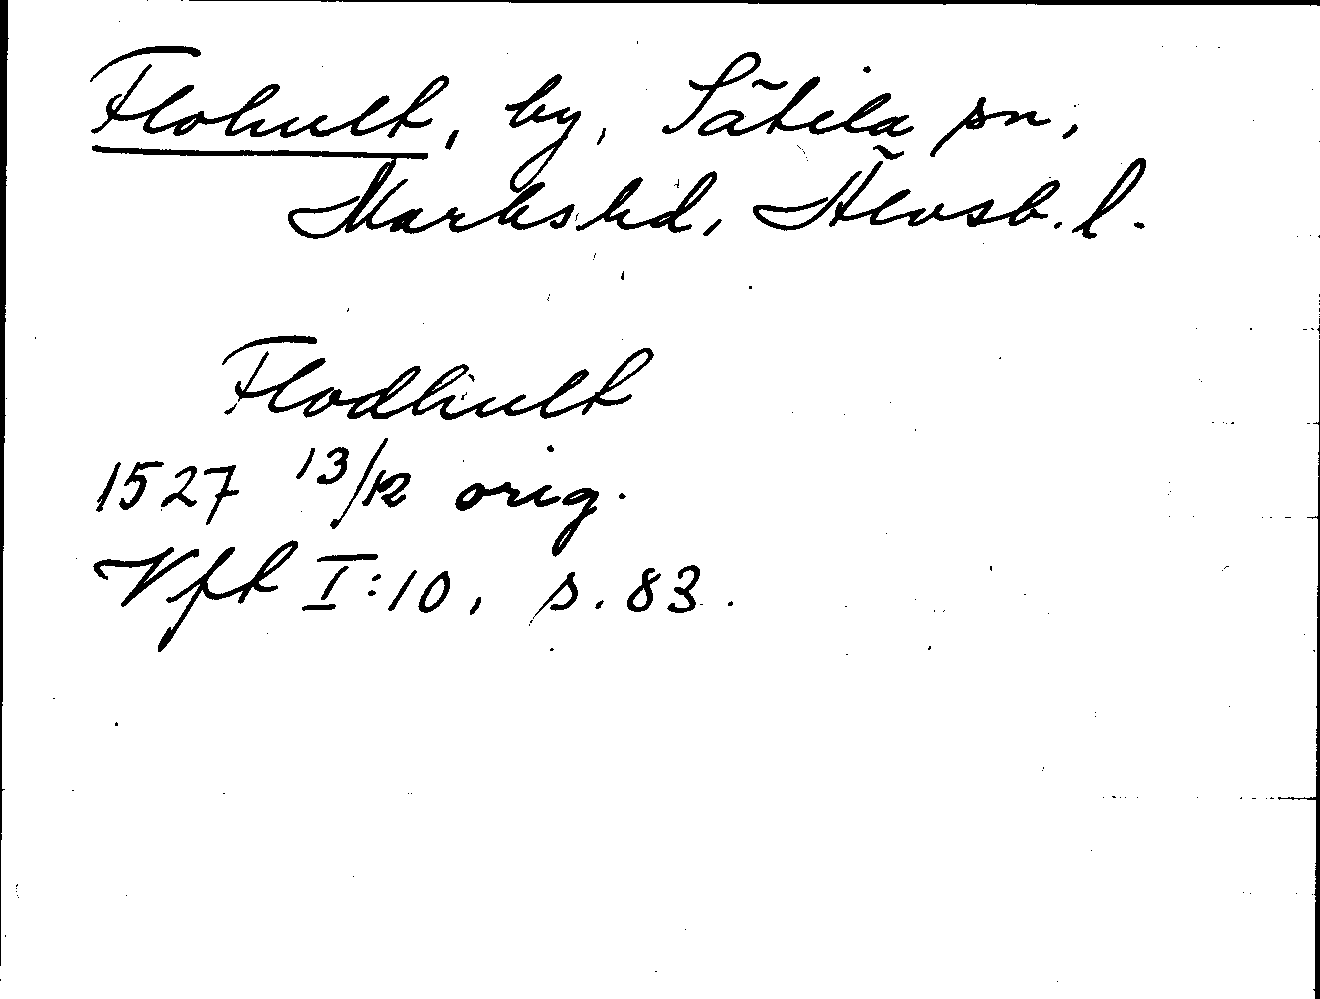 Flohult, by, Sätila sn,
Marks hd, Älvsb. l.
Flodhult
1527 13/12 orig.
Vft I:10, s. 83.